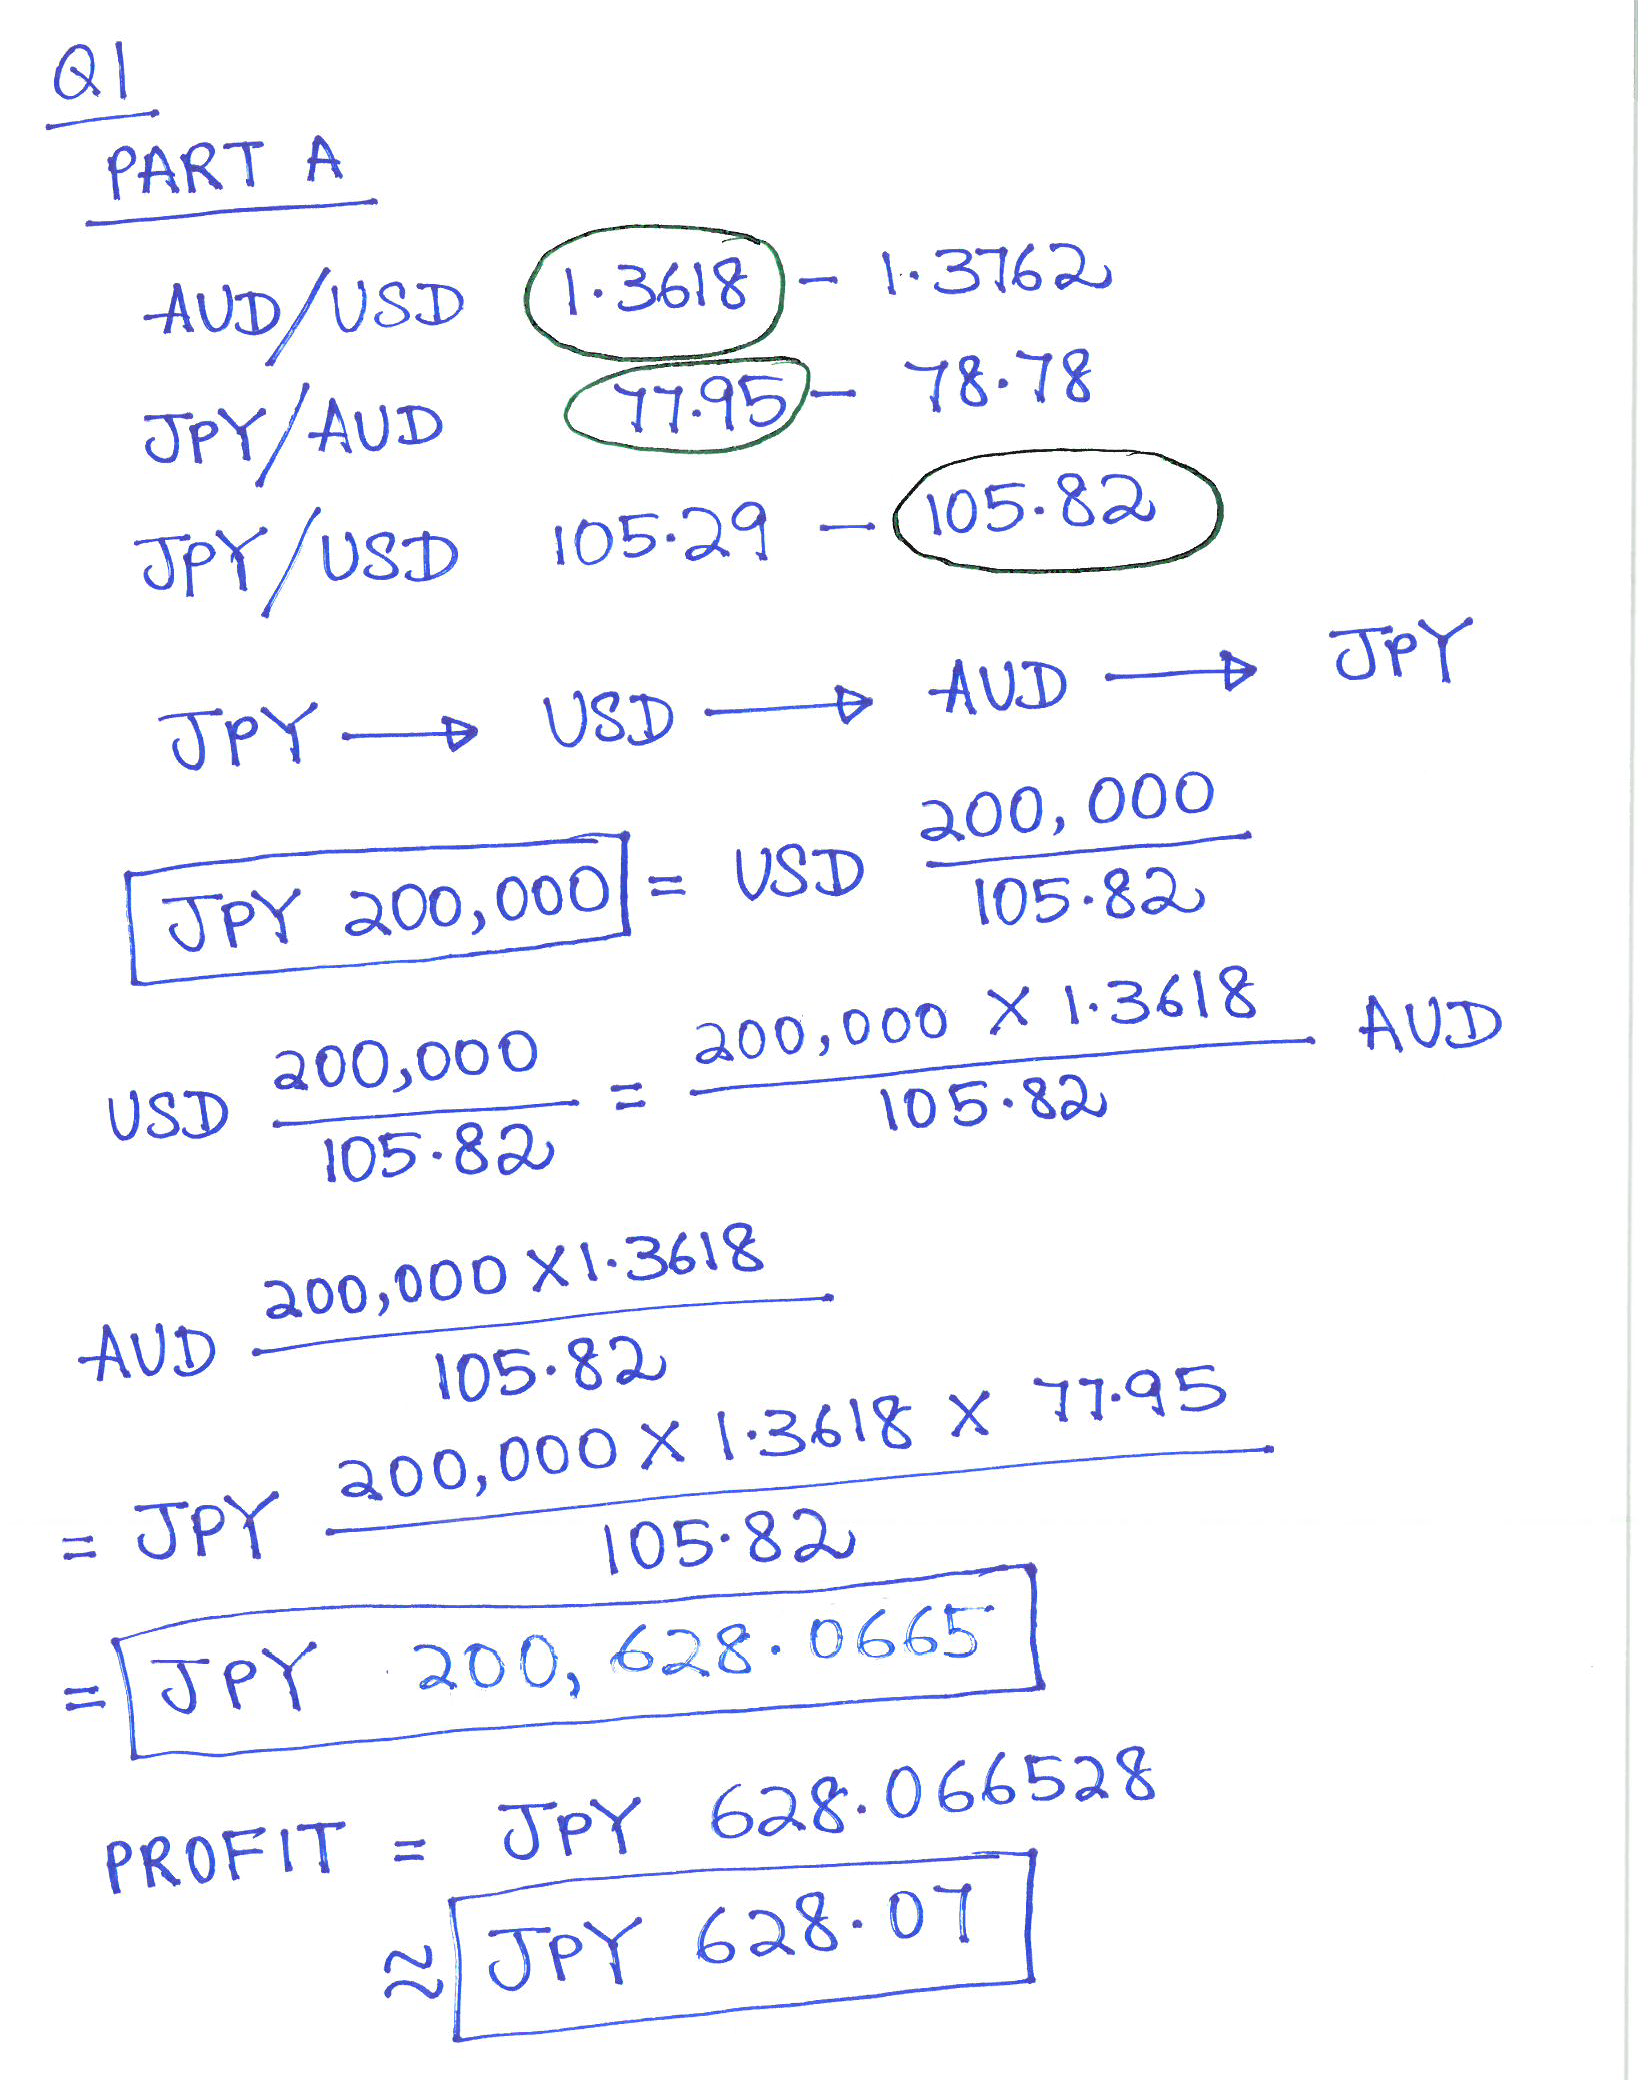 Q1
PART A
AUD/USD 1.3618 - 1.3762
JPY/AUD 77.95 - 78.78
JPY/USD 105.29 - 105.82
JPY → USD → AUD → JPY
JPY 200,000 = USD 200,000 / 105.82
USD 200,000 / 105.82 = 200,000 X 1.3618 / 105.82 AUD
AUD 200,000 X 1.3618 / 105.82
= JPY 200,000 X 1.3618 X 77.95 / 105.82
= JPY 200,628.0665
PROFIT = JPY 628.066528
≈ JPY 628.07